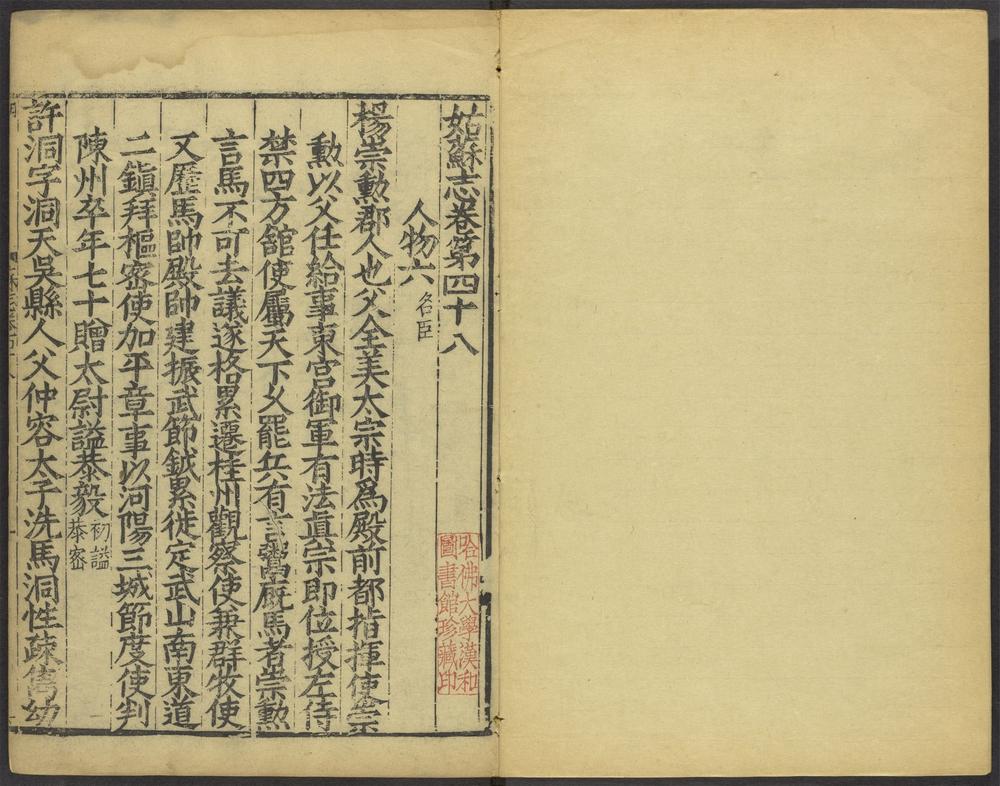 姑蘇志卷第四十八
人物六 名臣
楊崇勲郡人也父全美太宗時爲殿前都指揮使崇
勲以父任給事東宮御軍有法眞宗即位授左侍
禁四方舘使屬天下乆罷兵有言鬻廐馬者崇勲
言馬不可去議遂格累遷桂州觀察使兼群牧使
又歷馬帥殿帥建振武節鉞累徙定武山南東道
二鎮拜樞密使加平章事以河陽三城節度使判
陳州卒年七十贈太尉謚恭毅 初謚恭密
許洞字洞天吳縣人父仲容太子洗馬洞性疎雋幼
哈佛大學漢和
圖書館珍藏印